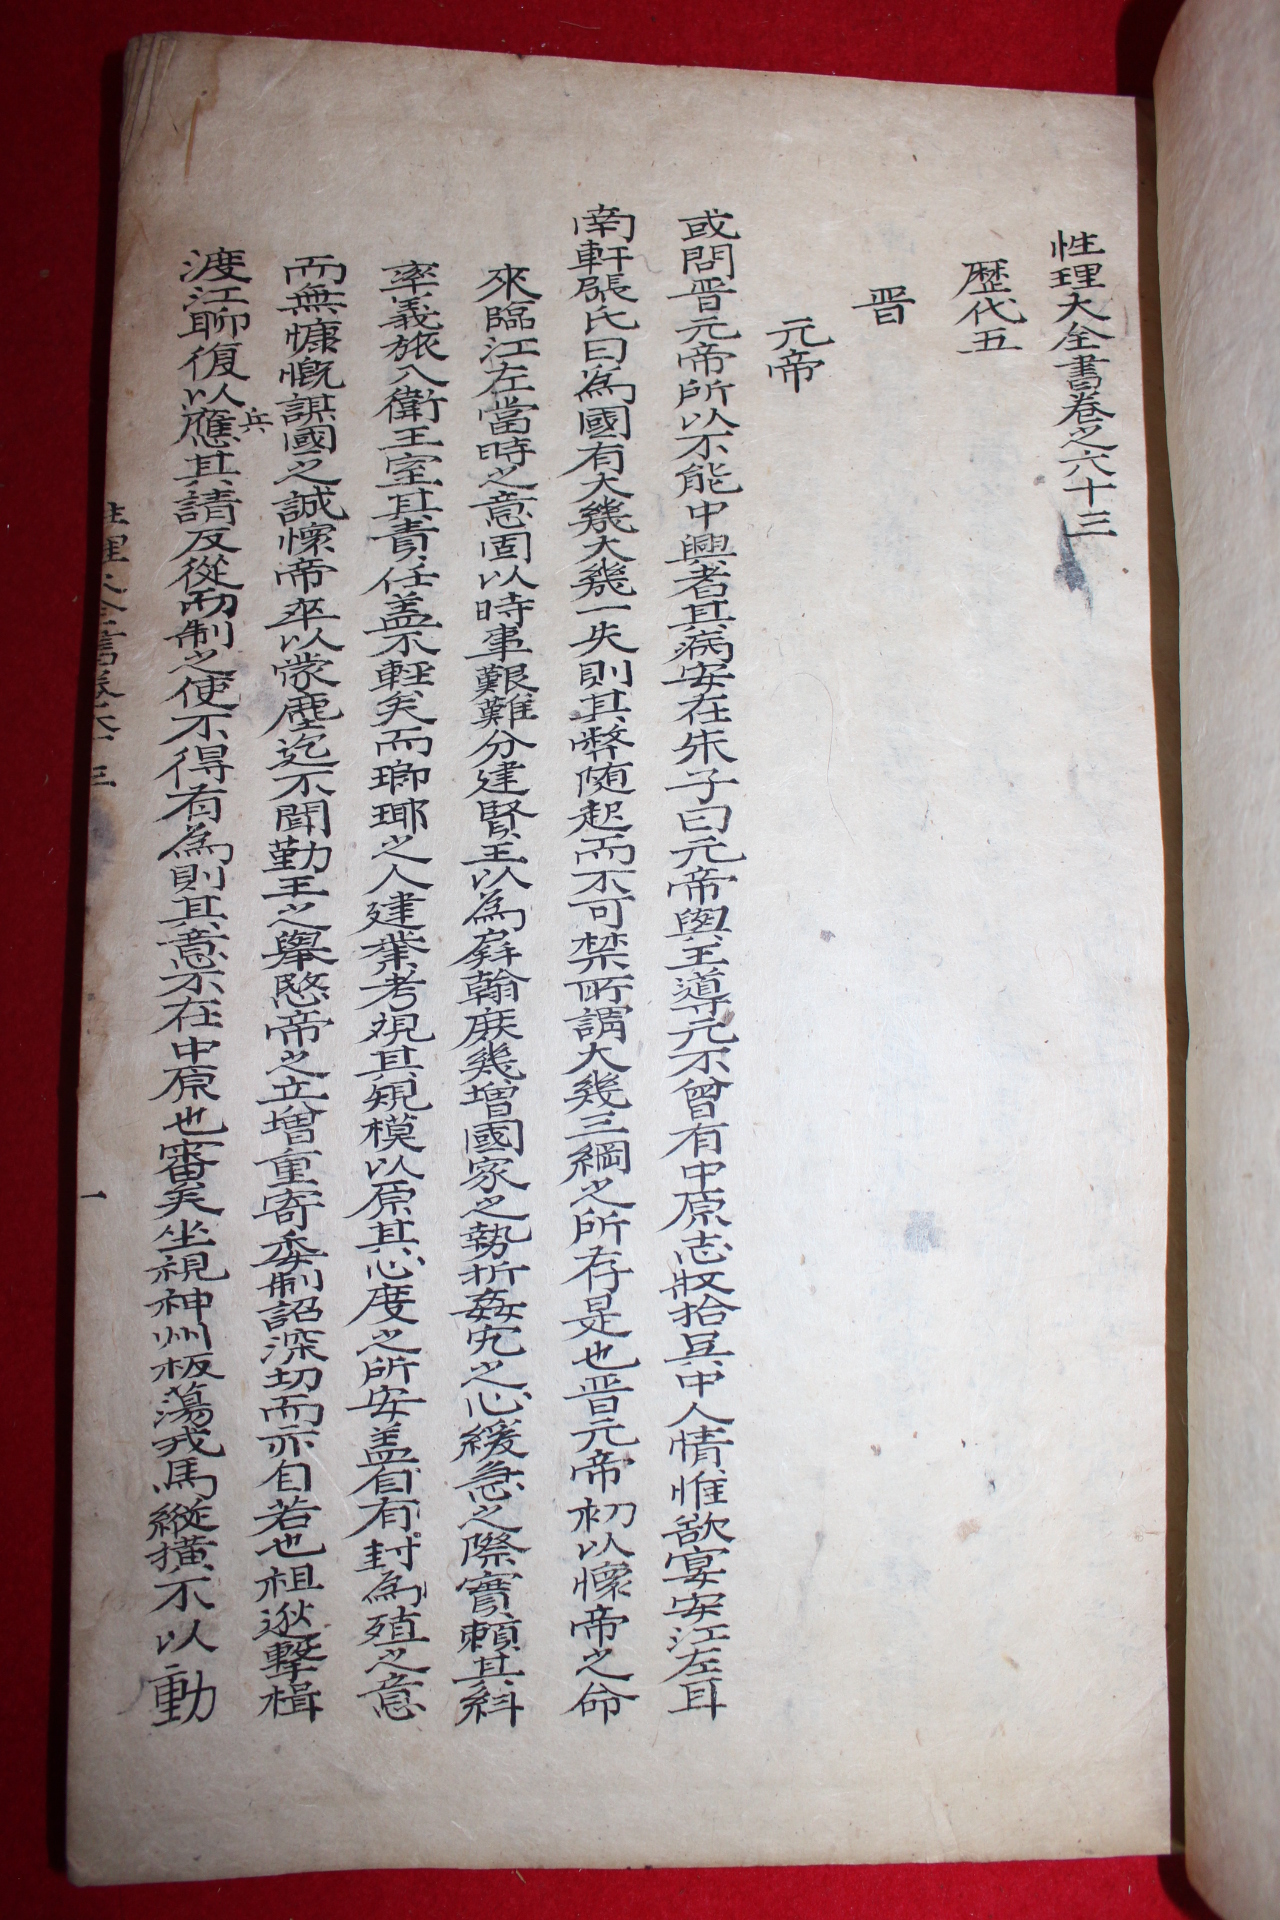 性理大全書卷之六十三
歷代五
晋
元帝
或問晋元帝所以不能中興者其病安在朱子曰元帝與王導元不曾有中原志收拾吴中人情惟欲宴安江左耳
南軒張氏曰為國有大幾大幾一失則其弊随起而不可禁所謂大幾三綱之所存是也晋元帝初以懷帝之命
來臨江左當時之意固以時事艱難分建賢王以為屛翰庶幾增國家之勢折姦宄之心緩急之際實賴其糾
率義旅入衛王室其責任盖不輕矣而瑯琊之入建業考觀其規模以原其心度之所安盖自有封為殖之意
而無慷慨謀國之誠懷帝卒以蒙塵迄不聞勤王之擧愍帝之立增重寄委制詔深切而亦自若也祖逖擊楫
渡江聊復以應其請反從而制之使不得有為則其意不在中原也審矣坐視神州板蕩戎馬縱橫不以動
兵
性理大全書卷六十三
一